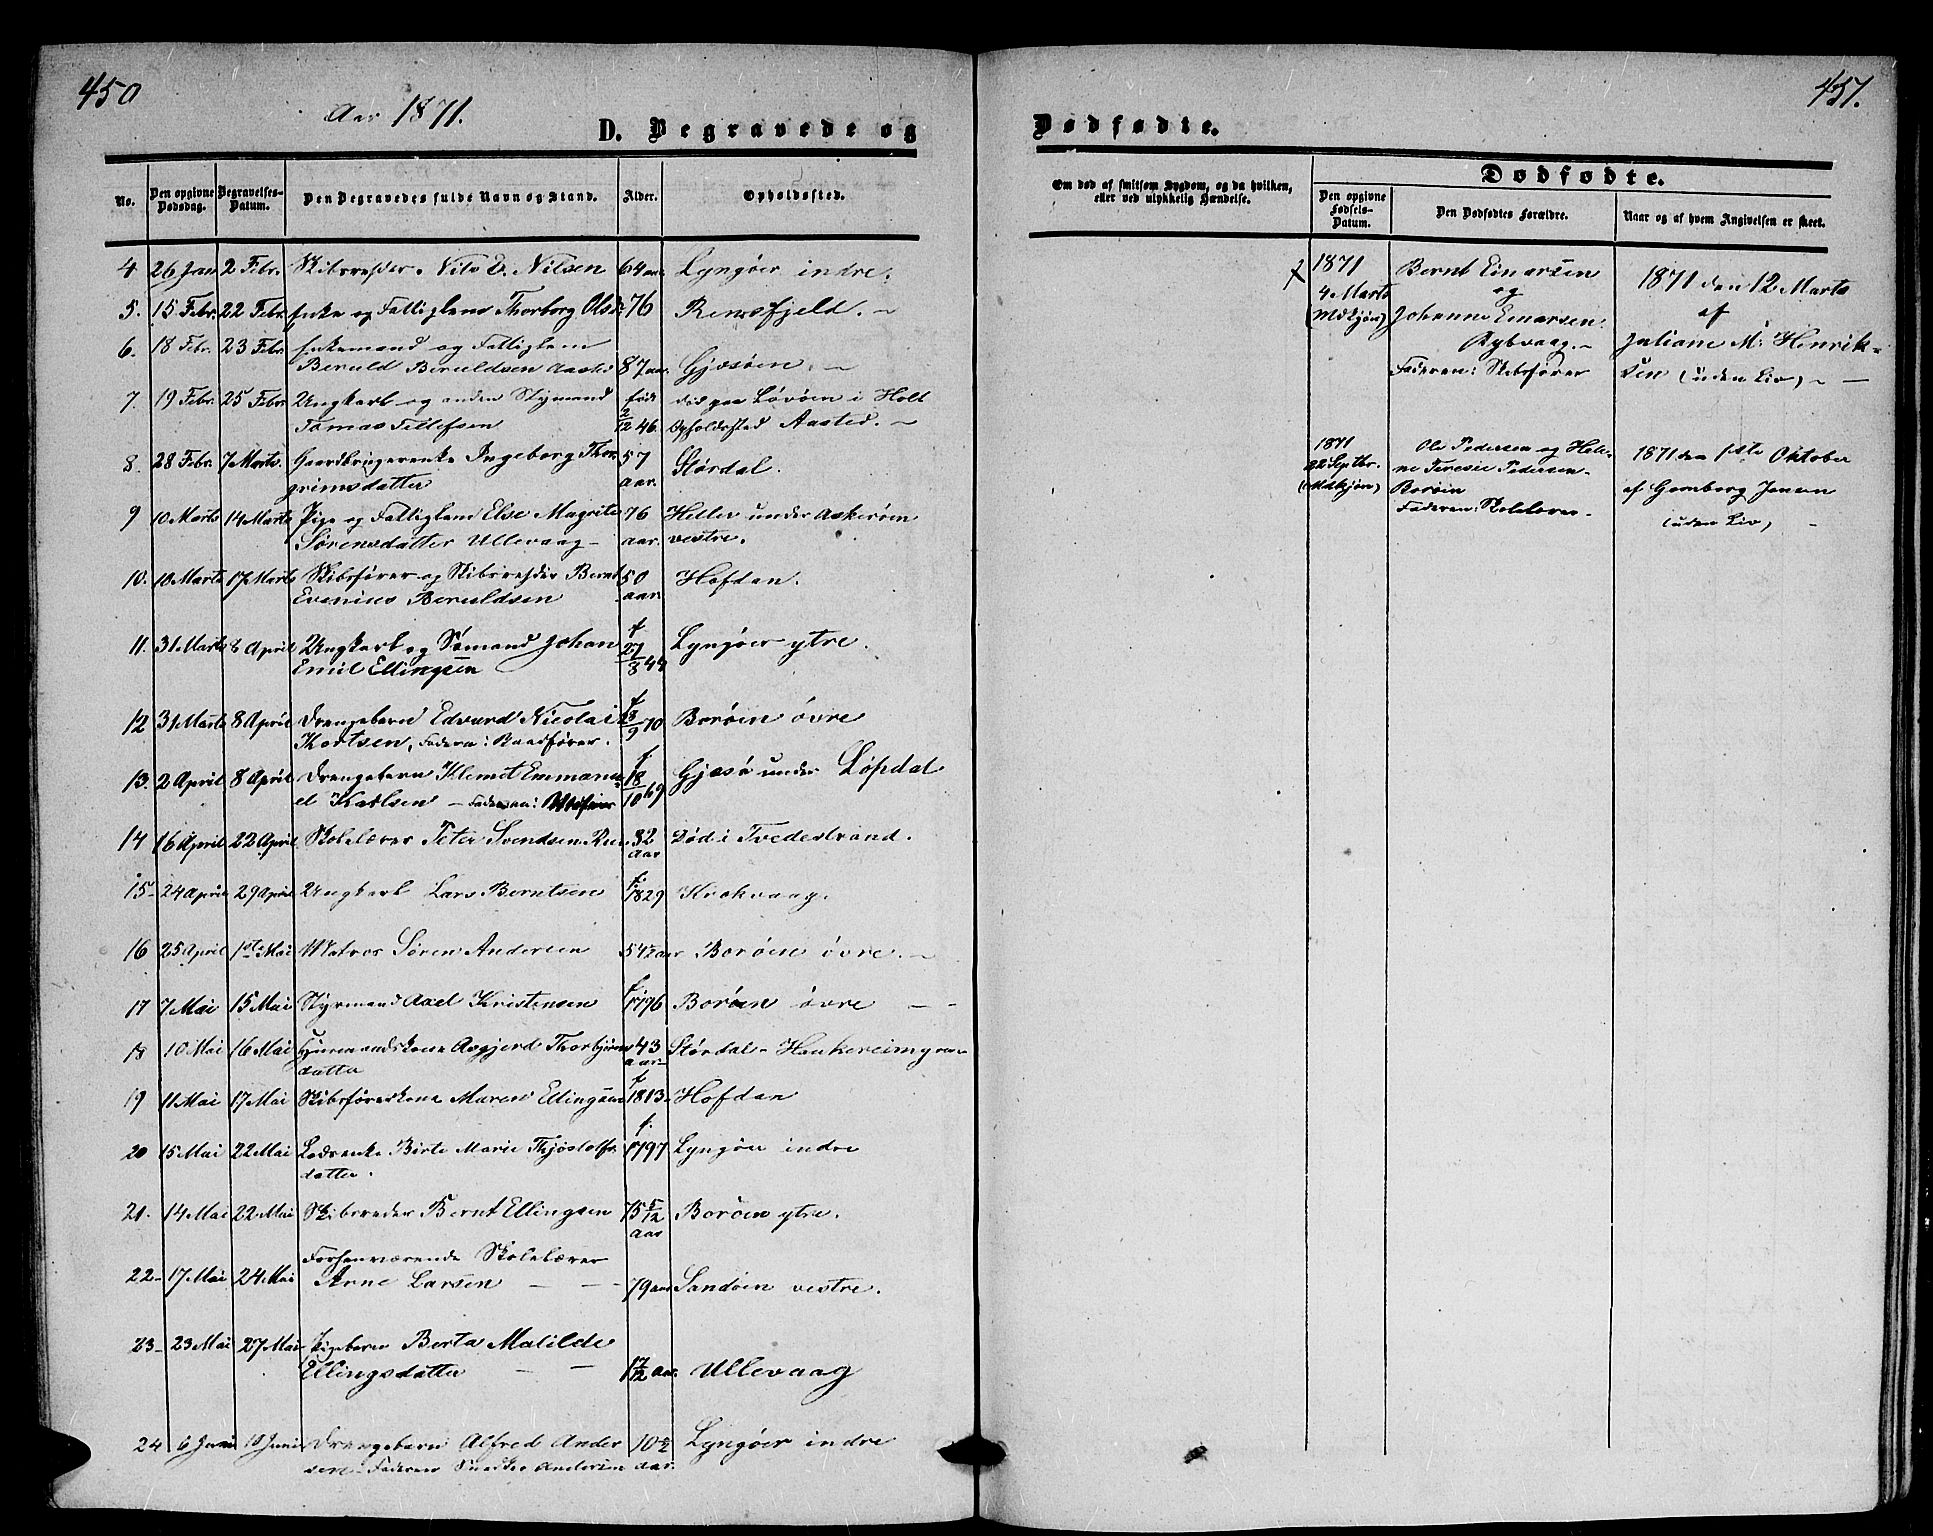 450
Aar 1871.
D. Begravede og
No.
Den opgivne Dødsdag.
Begravelses-Datum.
Den Begravedes fulde Navn og Stand.
Alder.
Opholdssted.
4 26 Jan 2 Febr. Skibsreder Nils E. Nilsen 64 aar Lyngøer indre.
5. 15 Febr. 22 Febr. Enke og Fattiglem Thorborg Olsd. 76 Remsfjeld. -
6. 18 Febr. 23 Febr. Enkemand og Fattiglem
Beruld Beruldsen Aasted 87 aar. Gjesøen. -
7. 19 Febr. 25 Febr. Ungkarl og anden Stymand født død paa Løvøen i Holt
Tomas Tellefsen 2/12 46. Opholdssted Aasted. -
8. 28 Febr. 7 Marts. Gaardbrugerenke Ingeborg Thor- 57 Størdal.
grimsdatter aar.
9 10 Marts 14 Marts Pige og Fattiglem Else Magrite 76 Heller under Askerøen
Sørensdatter Ullevaag - aar. vestre.
10. 10 Marts 17 Marts Skibsfører og Skibsreder Bernt 50 Hofdan.
Evenius Beruldsen aar.
11. 31 Marts 8 April Ungkarl og Sømand Johan f. Lyngøer ytre.
Emil Ellingsen 27/3 49
12 31 Marts 8 April Drengebarn Edvard Nicolai f. 23/9 70 Borøen øvre
Kortsen, Faderen: Baadfører.
13. 2 April 8 April Drengebarn Klemet Emmanu- f. 18/10 69 Gjesø under Løpdal
el Karlsen - Faderen:
14 16 April 22 April Skolelærer Peter Svendsen 32 aar Død i Tvedestrand.
15- 24 April 29 April Ungkarl Lars Berntsen f. 1829 Krokvaag.
16 25 April 1ste Mai Matros Søren Andersen 54 1/2 aar Borøen øvre. -
17 7 Mai 15 Mai Styrmand Axel Kristensen f. 1796 Borøen øvre - -
18 10 Mai 16 Mai Husmandskone Asgjerd Thorbjørns 43 Størdal -
datter aar.
19 11 Mai 17 Mai Skibsførerkone Maren Ellingsen f. 1813. Hofdan
20 15 Mai 22 Mai Lodsenke Birte Marie Thjøstolfs- f. 1797 Lyngøer indre
datter.
21. 14 Mai 22 Mai Skibsreder Bernt Ellingsen 75 5/12 Borøen ytre.
aar
Forhenværende Skolelærer
22- 17 Mai 24 Mai Arne Larsen - - 79 aar Sandøen vestre.
23- 23 Mai 27 Mai Pigebarn Berta Matilde
Ellingsdatter - - 1 7/12 aar. Ullevaag
24 6 Juni 10 Juni Drengebarn Alfred Ander 10 1/2 Lyngøer indre
sen - Faderen Snedker Andersen aar.
451.
Dødfødte.
Om død af smitsom Sygdom, og da hvilken,
eller ved ulykkelig Hændelse.
Dødfødte.
Den opgivne Fødsels-Datum.
Den Dødfødtes Forældre.
Naar og af hvem Angivelsen er skeet.
1871 Bernt Einarsen 1871 den 12 Marts
4 Marts og af
(Mdkjøn) Johanne Einarsen. Juliane M. Henrik-
Dybvaag. - sen (uden Liv) - -
Faderen: Skibsfører
1871 Ole Pedersen og Hele- 1871 den 1ste Oktober
22 Septbr. ne Teresie Pedersen. af Gunborg Jensen
(Mdkjøn) Borøen (uden Liv) -
Faderen: Skolelærer -